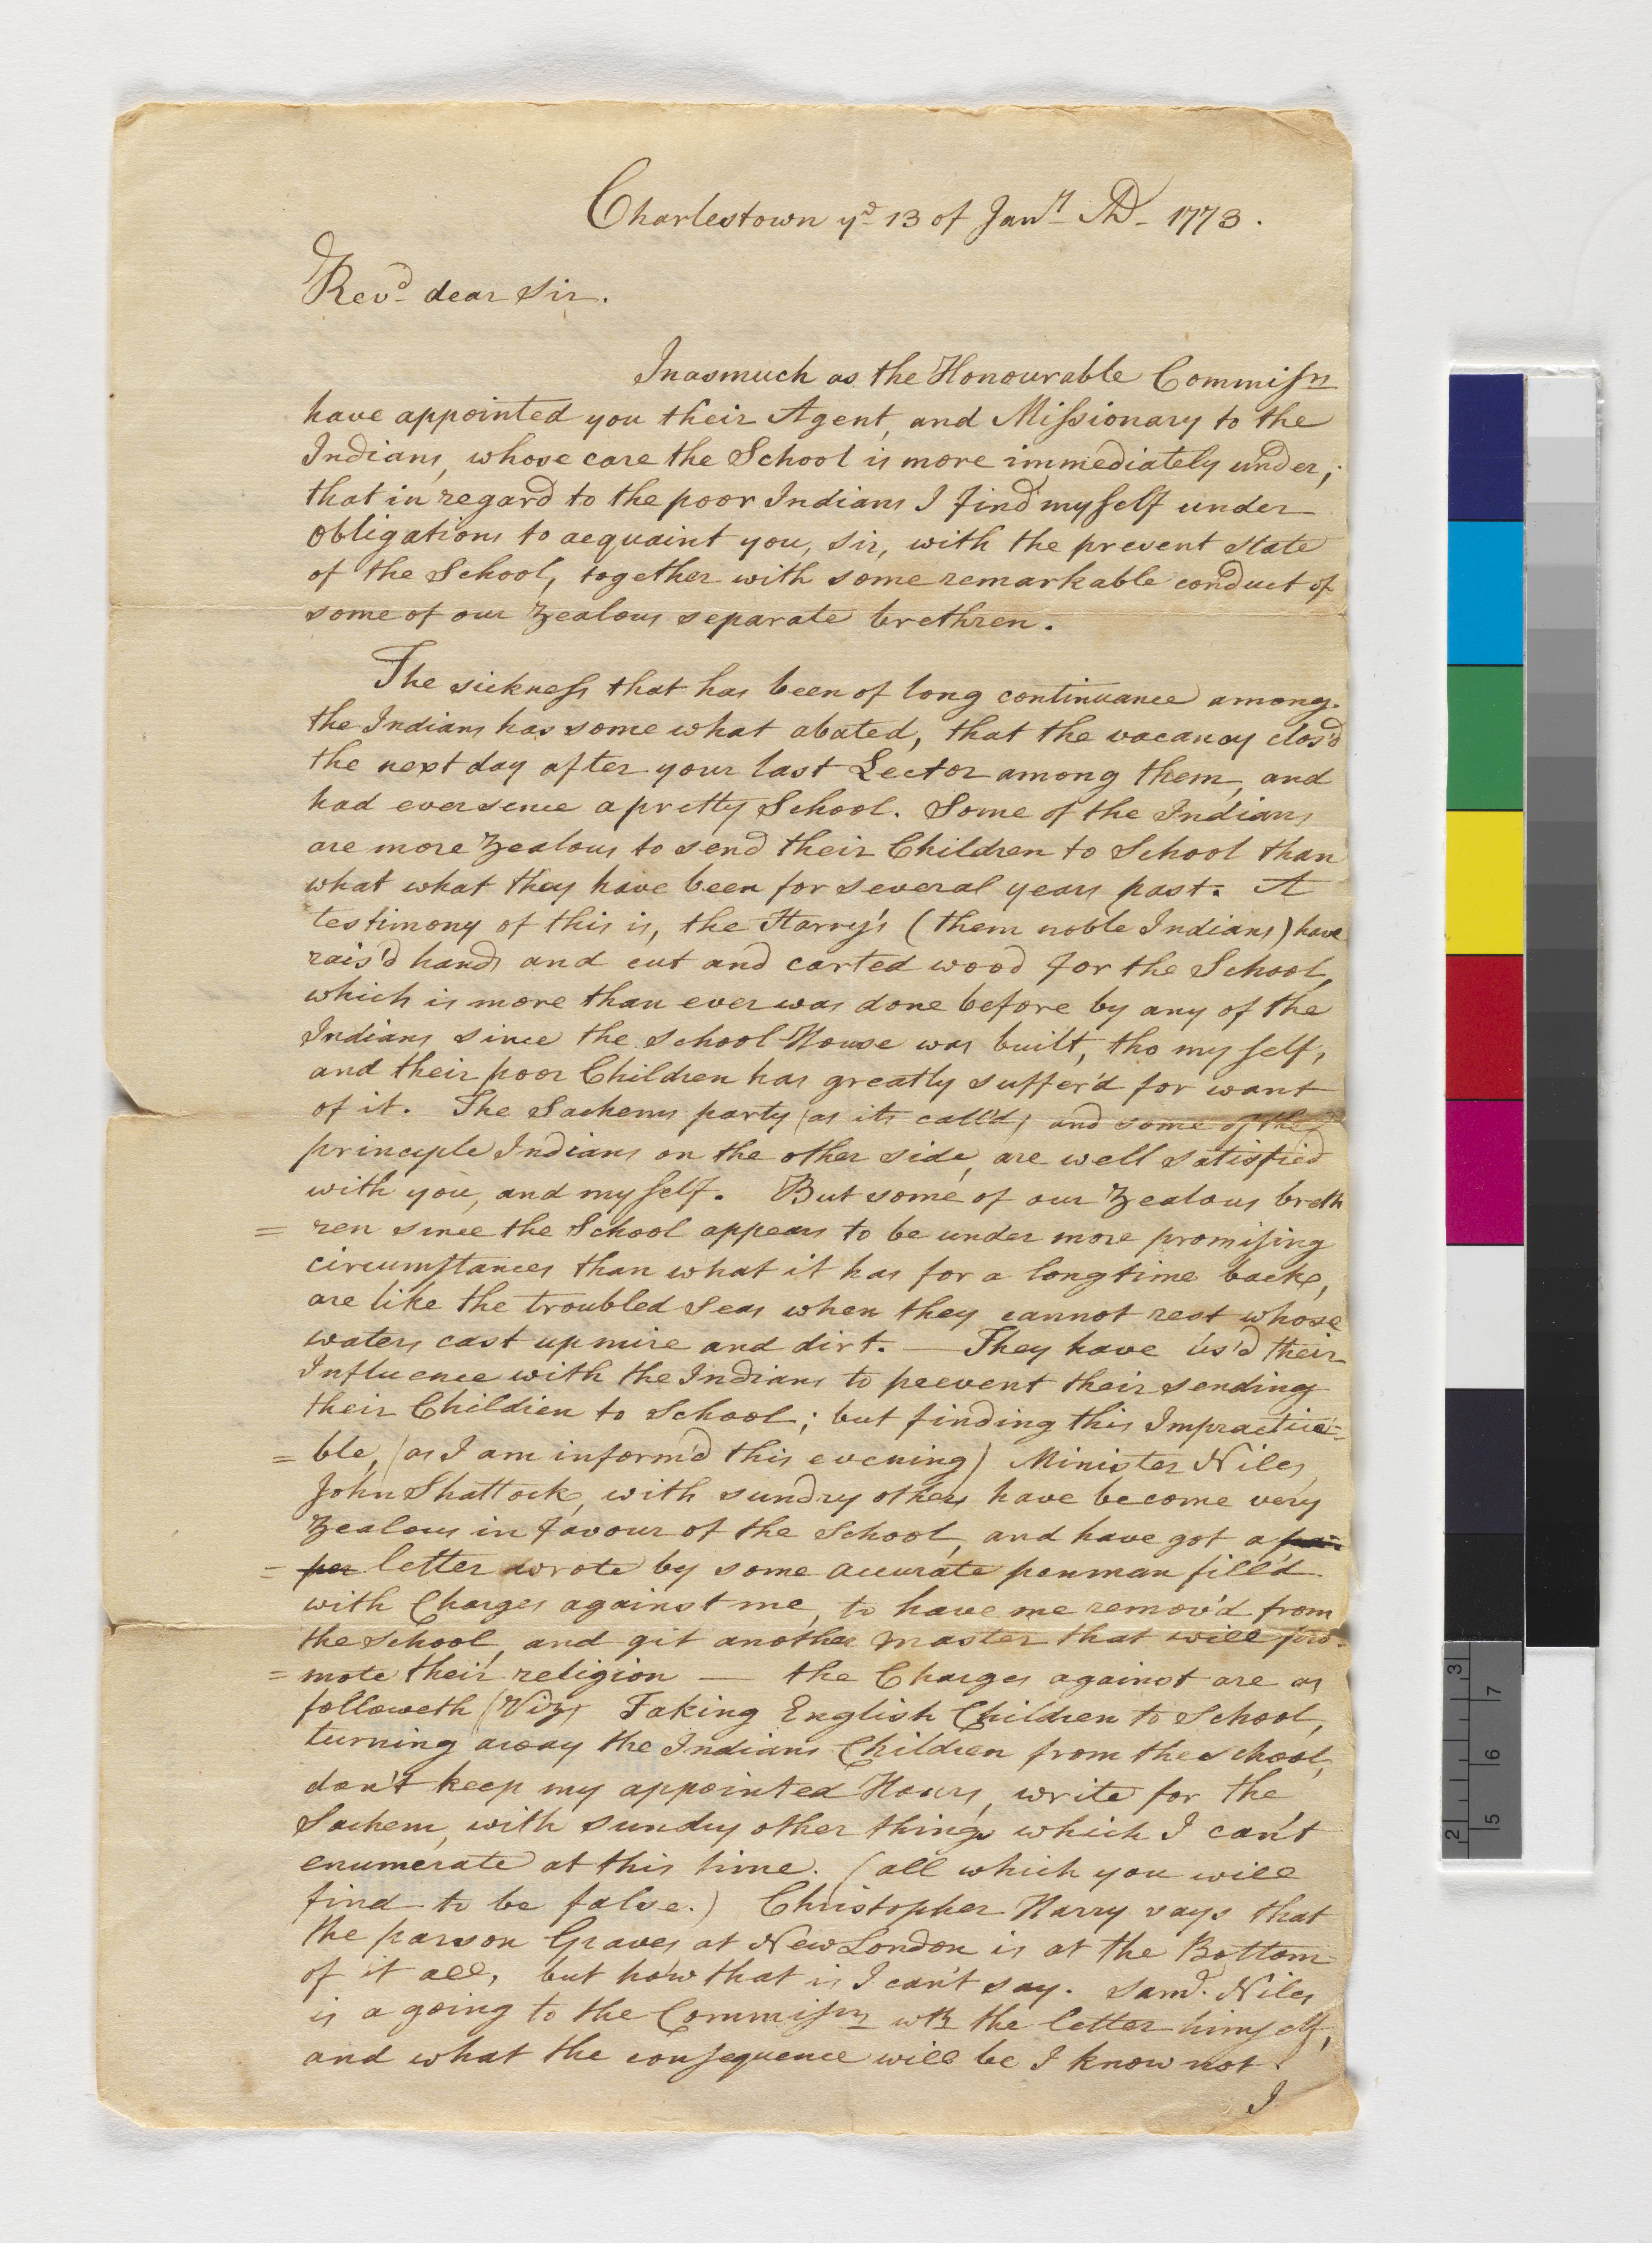 Charlestown yd 13 of Jany AD- 1773.
Revd dear Sir.
Inasmuch as the Honourable Commissrs
have appointed you their Agent, and Missionary to the
Indians, whose care the School is more immediately under,
that in regard to the poor Indians I find my self under
obligations to acquaint you, Sir, with the present state
of the School, together with some remarkable conduct of
some of our Zealous separate brethren.
The sickness that has been of long continuance among
the Indians has some what abated, that the vacancy clos'd
the next day after your last Lector among them, and
had ever sence a pretty School. Some of the Indians
are more Zealous to send their Children to School than
what what they have been for several years past. A
testimony of this is, the Harry's (them noble Indians) have
rais'd hands and cut and carted wood for the School,
which is more than ever was done before by any of the
Indians since the School-House was built, tho my self,
and their poor Children has greatly suffer'd for want
of it. The Sachems party (as its call'd) and some of the
principle Indians on the other side, are well satisfied
with you, and my self. But some of our Zealous breth
= ren since the School appears to be under more promising
circumstances than what it has for a long time back,
are like the troubled Seas when they cannot rest whose
waters cast up mire and dirt. — They have us'd their
Influence with the Indians to peevent their sending
their Children to School; but finding this Impractica=
= ble, (as I am inform'd this evening) Minister Niles,
John Shattock, with sundry others have become very
Zealous in favour of the School, and have got a pa=
= per letter wrote by some accurate penman fill'd
with Charges against me, to have me remov'd from
the School, and git another master that will pro=
= mote their religion — the Charges against are as
followeth (Viz) Taking English Children to School,
turning away the Indians Children from the School,
don't keep my appointed Hours, write for the
Sachem, with sundry other things which I can't
enumerate at this time. (all which you will
find to be false.) Christopher Harry says that
the parson Graves at New London is at the Bottom
of it all, but how that is I can't say. Saml. Niles
is a going to the Commissrs wth the letter himself,
and what the consequence will be I know not.
I
2 3
5 6 7